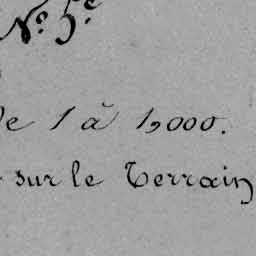 N.° 5.e
de 1 à 1,000.
sur le Terrain